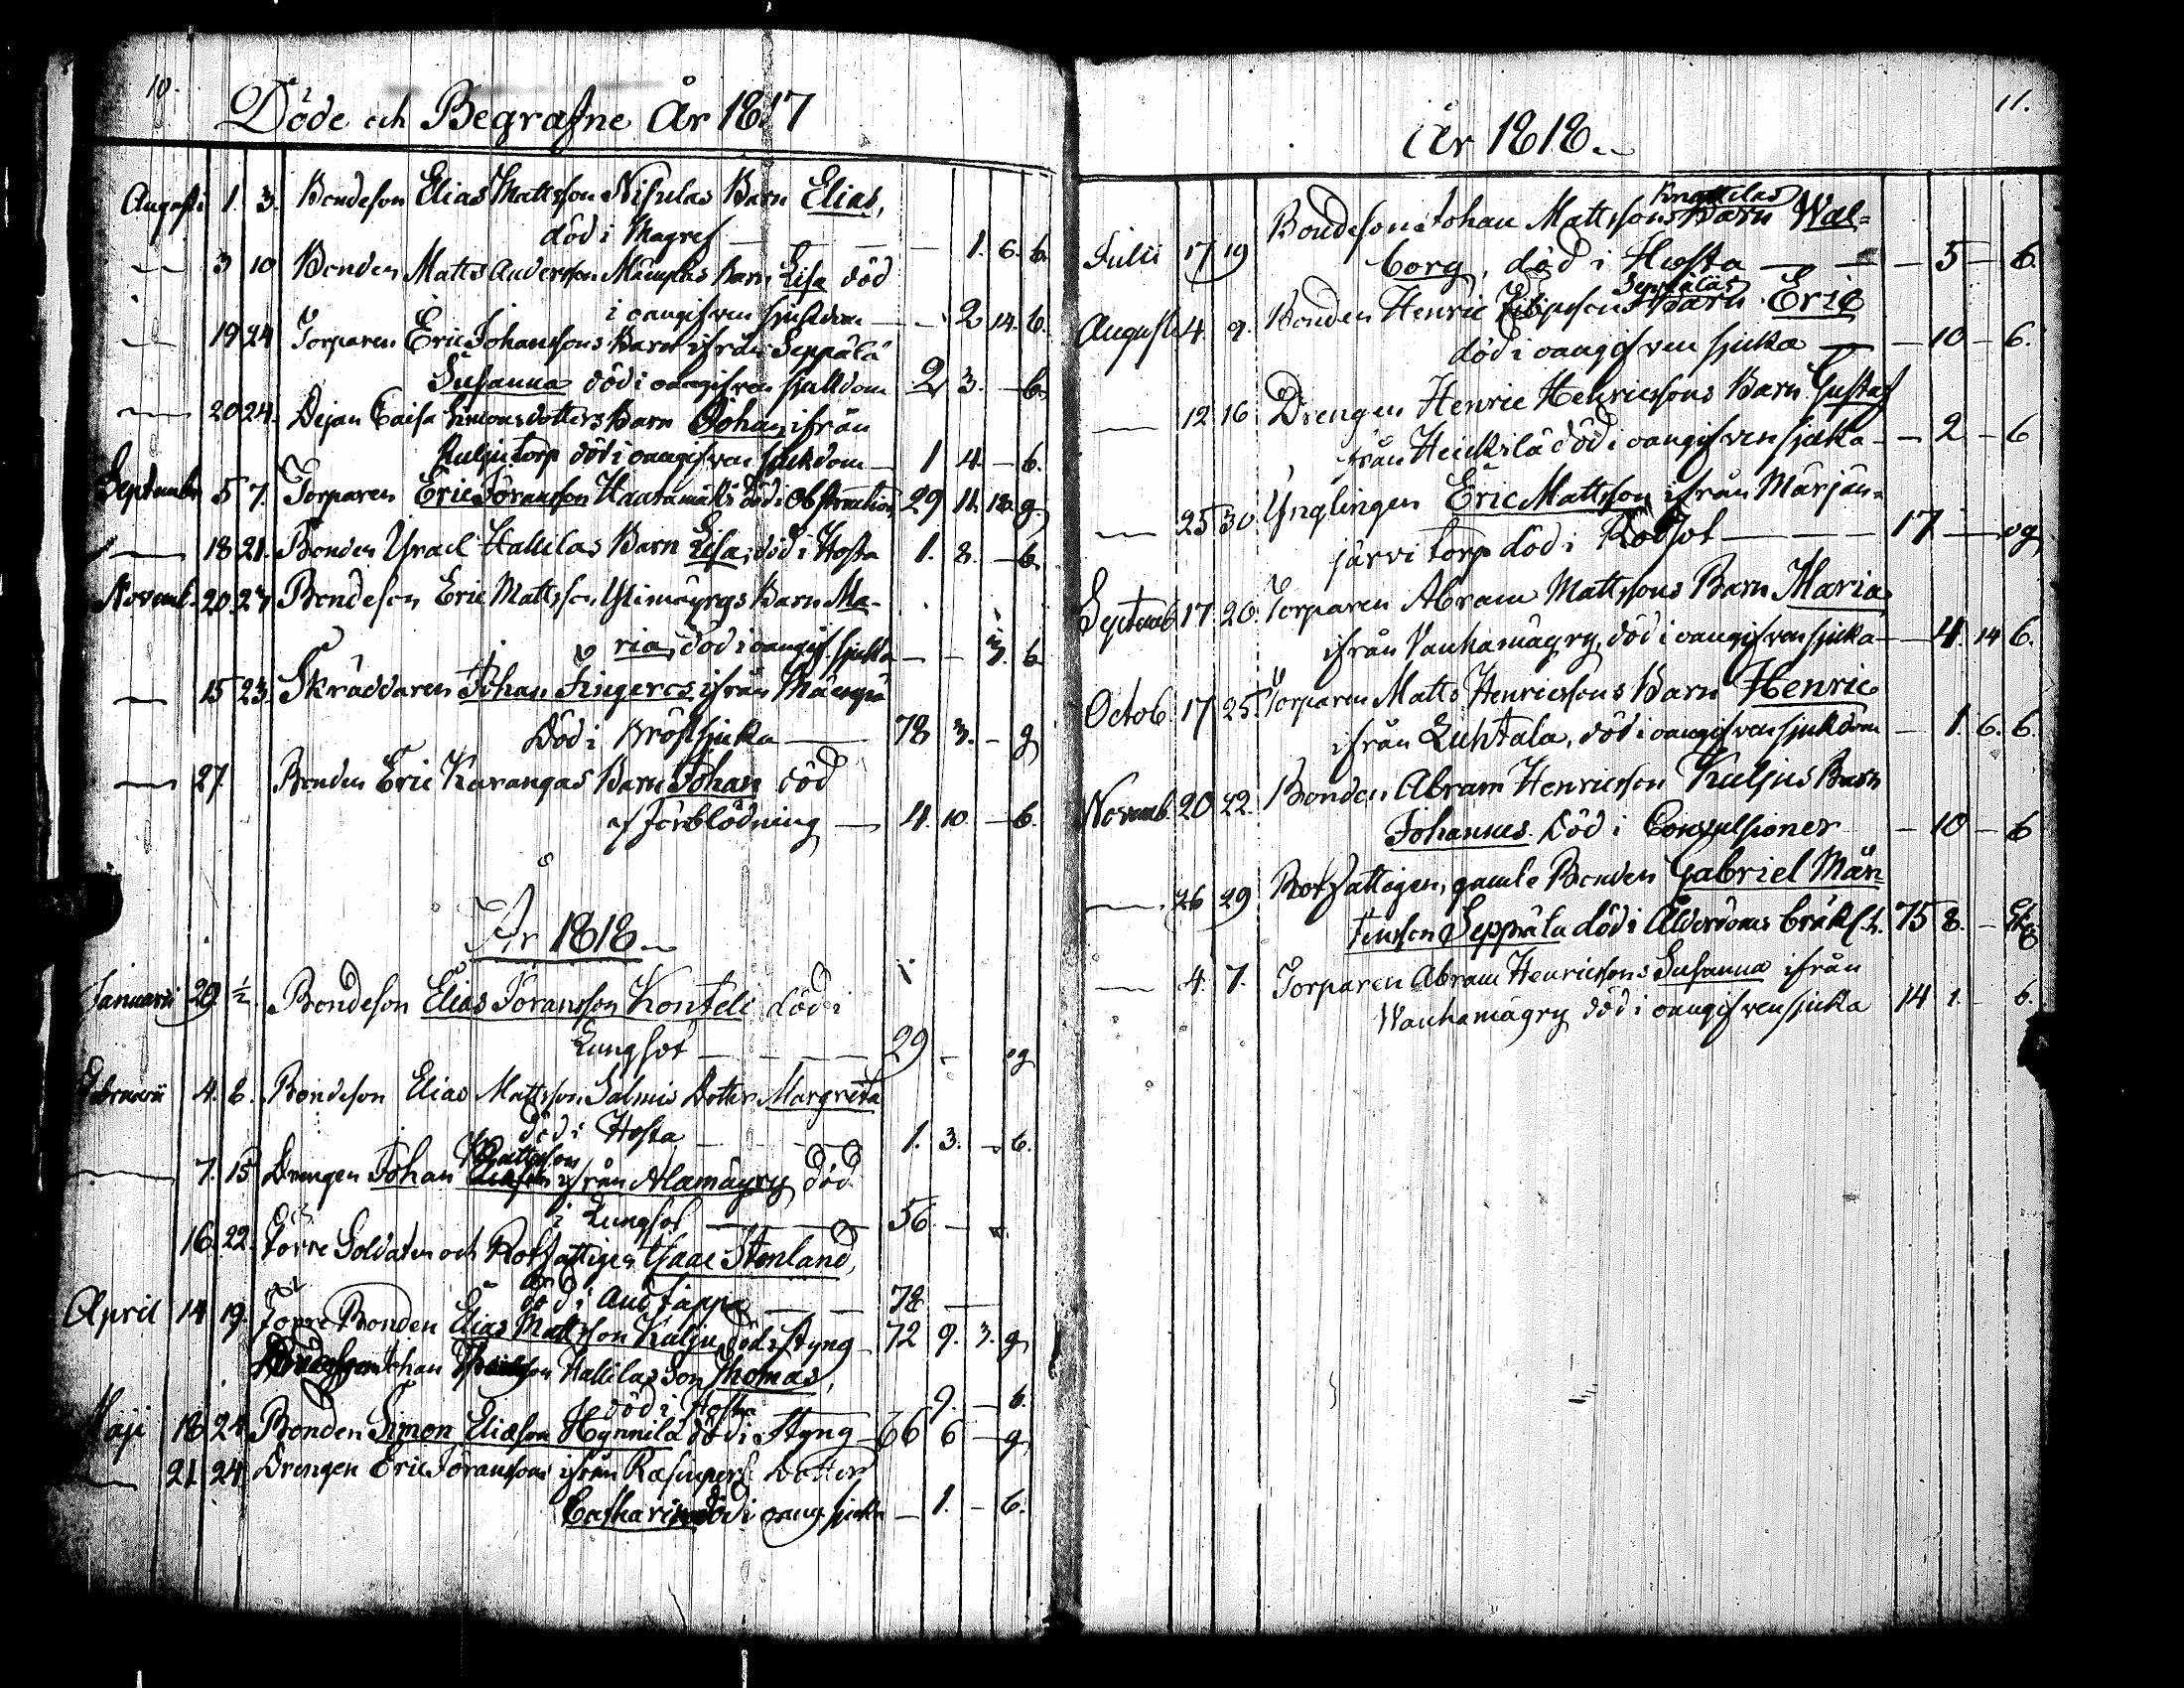 10.
Döde och Begrafne År 1817
Augusti 1. 3. Bondeson Elias Mattsson Nisulas Barn Elias,
död i Magref — — — 1. 6. b.
— 3 10 Bonden Matts Andersson Mäenpäs Barn Lisa död
i oangifven sjukdom — — 2 14. b.
— 19 24 Torparen Eric Johanssons Barn ifrån Seppälä
Susanna död i oangifven sjukdom 2 3. — b.
— 20 24. Pigan Caisa Simonsdotters Barn Johan, ifrån
Kulju torp död i oangifven sjukdom — 1 4. — b.
September 5 7. Torparen Eric Göransson Haatamäki död i Obstruction 29 11. 18. g.
— 18 21. Bonden Israel Hallilas Barn Lisa, död i Hosta 1. 8. — b.
Novemb. 20. 27. Bondeson Eric Mattsson Ylimäyrys Barn Ma-
ria, död i oangif. sjukd. — — 3. b
— 15 23. Skräddaren Johan Fingerois ifrån Mäenpä
död i Bröstsjuka — 78 3. — g
— 27. Bonden Eric Karangas Barn Johan död
af Förblödning — 4. 10. — b.
År 1818.
Januarii 29. ½. Bondeson Elias Göransson Konteli död i
Lungsot — — — 29 — g
Februarii 4. 8. Bondeson Elias Mattsson Salmis Dotter Margreta
död i Hosta — — 1. 3. — b.
— 7. 15 Drengen Johan Mattsson ifrån Alamäyry död
i Lungsot — — 56. —
16. 22. Förre Soldaten och Rotfattigen Isaac Stenland,
död i Andtäppa — — 78 —
April 14 19. Förre Bonden Elias Mattsson Kulju död i Styng — 72 9. 3. g
Johan Hallilas Son Thomas,
död i Hosta 9. — b.
Maji 18 24 Bonden Simon Eliasson Hynnilä död i Styng — 66 6 — g
— 21 24. Drengen Eric Göranssons ifrån Dotter
Catharina död i oang. sjukd. — 1. — b.
11.
År 1818.
Knuttilas
Julii 17 19 Bondeson Johan Mattssons Barn Wal-
borg, död i Hosta — — — 5 — b.
Seppäläs
Augusti 4. 9. Bonden Henric Barn Eric
död i oangifven sjuka — — 10 — b.
— 12 16 Drengen Henric Henricssons Barn Gustaf
från Heickilä död i oangifven sjuka — — 2 — b
— 25 30 Ynglingen Eric Mattsson ifrån Märjän-
järvi torp död i Rödsot — — — 17 — og
Septemb. 17. 20. Torparen Abram Mattssons Barn Maria
ifrån Vanhamäyry, död i oangifven sjuka — — 4. 14 b.
Octob. 17 25. Torparen Matts Henricssons Barn Henric
ifrån Luhtala, död i oangifven sjukdom — 1. 6. b.
Novemb. 20 22. Bonden Abram Henricsson Kuljus Barn
Johannes död i Convulsioner — 10 — b
— 26 29 Rotfattigen, gamle Bonden Gabriel Mår-
tensson Seppälä död i Ålderdoms bräkl.h. 75 8. —
— 4. 7. Torparen Abram Henricssons Susanna ifrån
Wanhamäyry död i oangifven sjuka 14 1 — b.